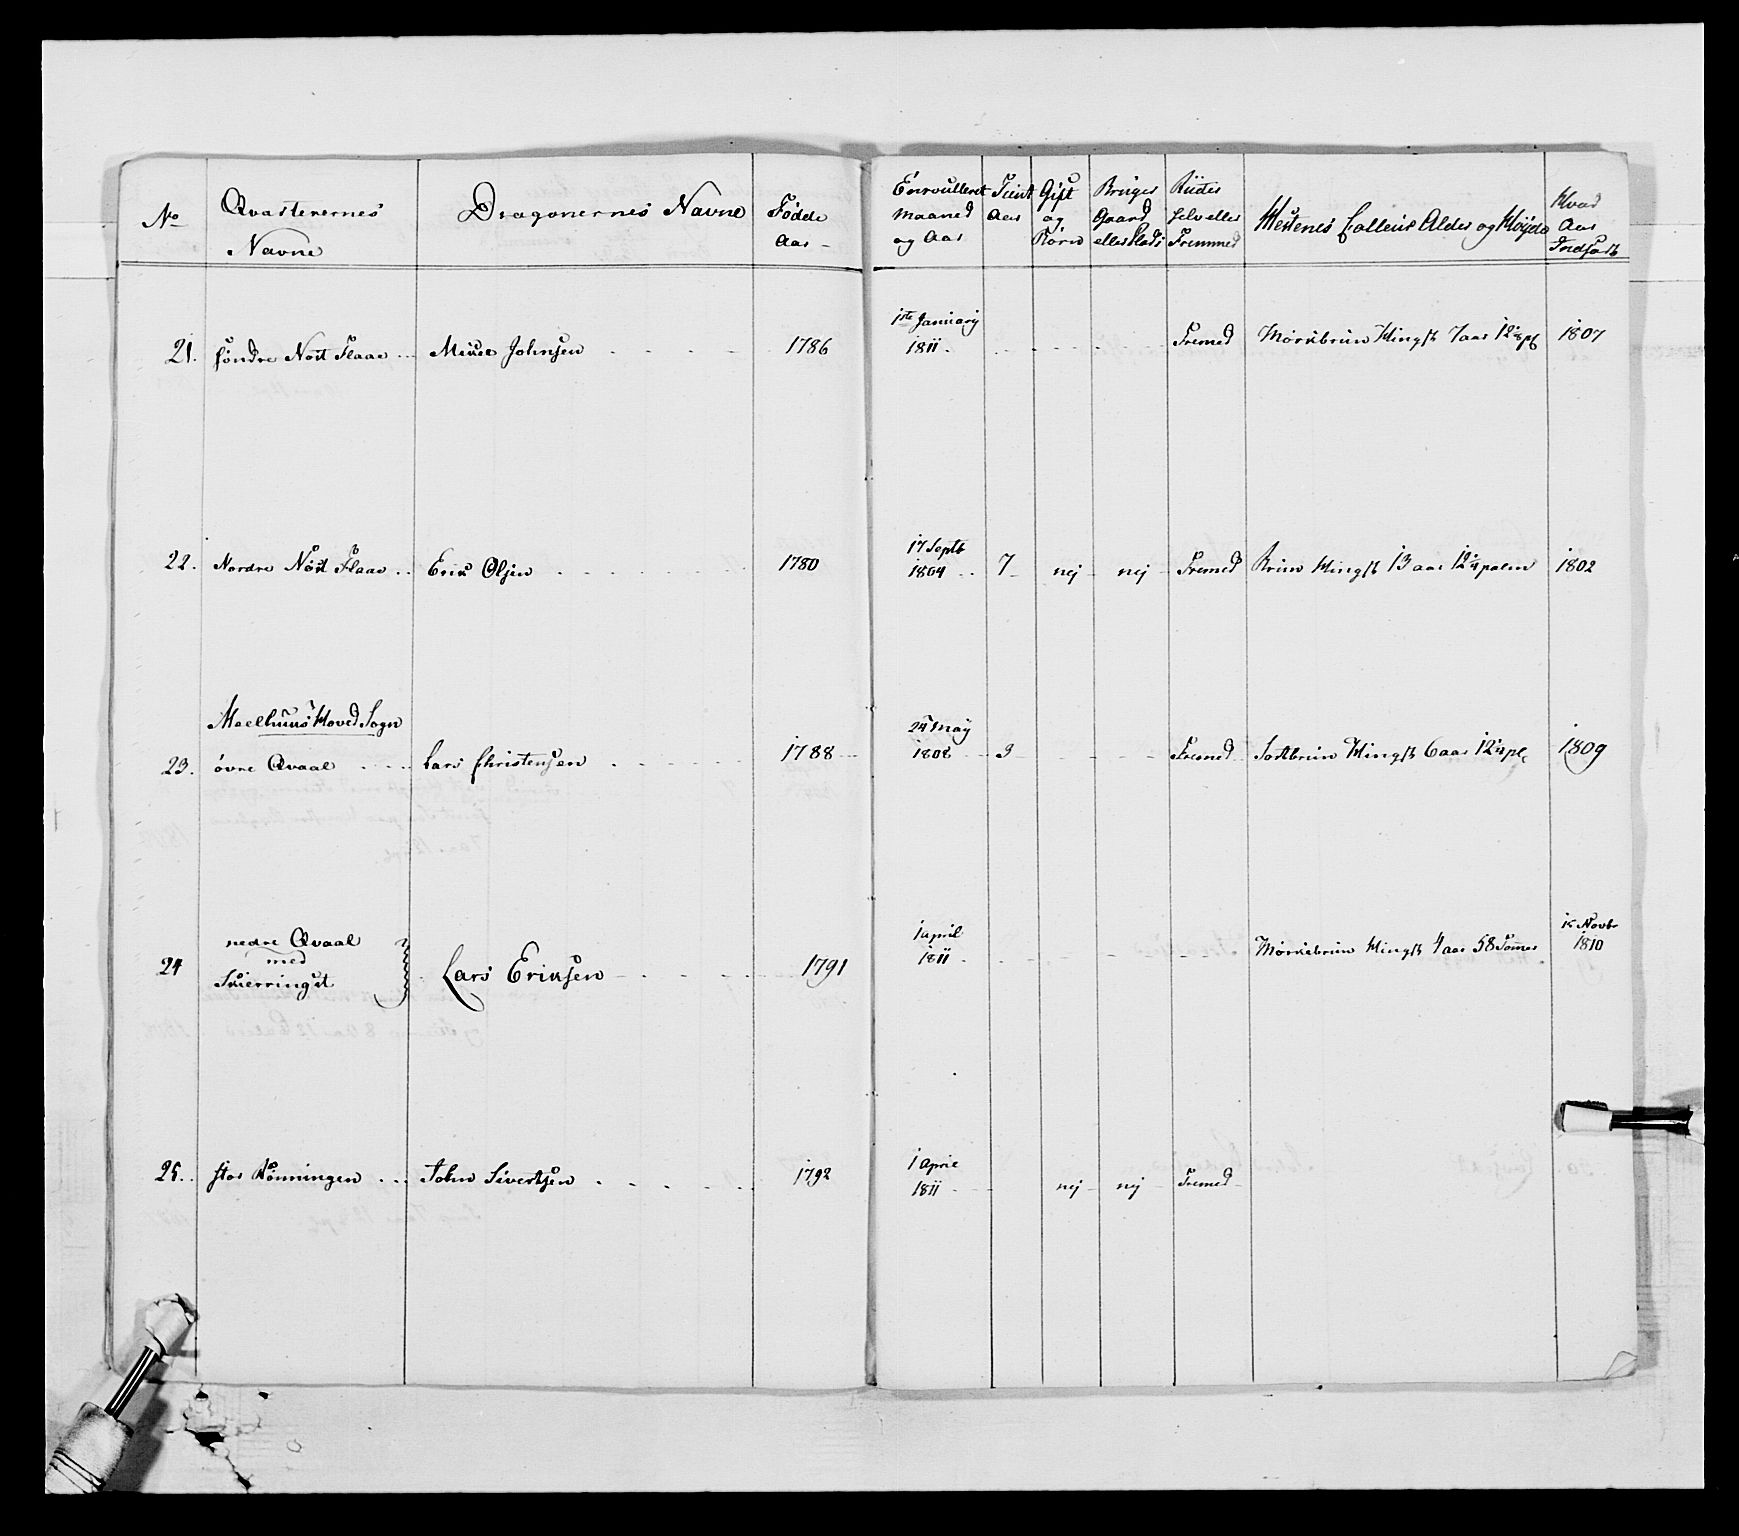 No Qvarterernes Navne Dragonernes Navne Fødde Aar Enroulleret Maaned og Aar Tient Aar Gift og Børn Bruger Gaard eller Plads Riides selv eller Fremmed Hestenes Colleur Alder og Høyde Hvad Aar Indsadt
21. søndre Nost Flaae Johnsen 1786 1ste January 1811. Fremed Mørkebrun Hingst 7 aar 1807
22. Nordre Nøst Flaae Erik Olsen 1780 17 Septb 1804 7 nej nej Fremed Brun Hingst 13 aar 12 1/4 palm 1802
Meelhuus Hoved Sogn
23. øvre Qvaal Lars Christensen 1788 24 May 1808 3 Fremed Sortbrun Hingst 6 aar 1809
24 nedre Qvaal med Skierringst Lars Eriksen 1791 1 april 1811 Mørkebrun Hingst 4 aar 58 Tomer Novbr 1810
25. stor Rønningen John Sivertsen 1792 1 April 1811 nej nej Fremed